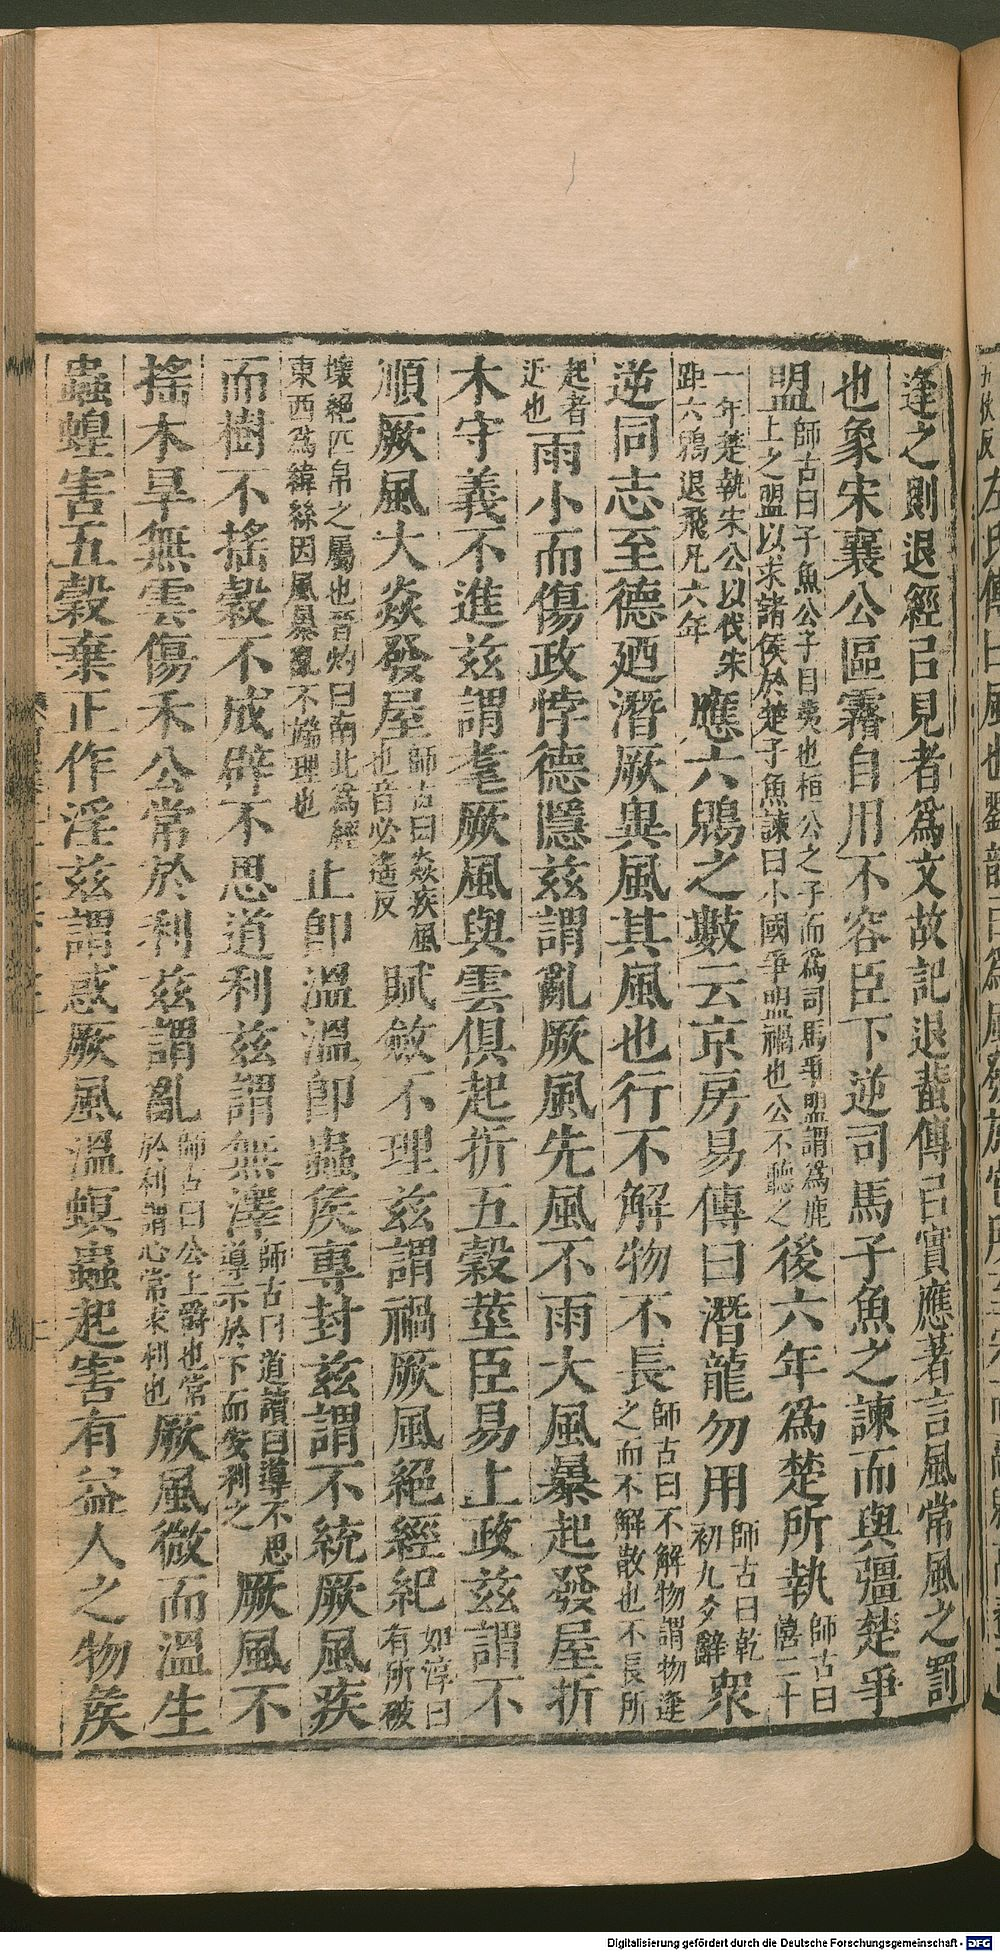 逢之則退經㠯見者爲文故記退蜚傳㠯實應著言風常風之罰
也象宋襄公區霿自用不容臣下逆司馬子魚之諫而與彊楚爭
盟師古曰子魚公子目夷也桓公之子而爲司馬爭盟謂爲鹿上之盟以求諸侯於楚子魚諫曰小國爭盟禍也公不聽之後六年爲楚所執師古曰僖二十
一年楚執宋公以伐宋距六鶂退飛凡六年應六鶂之數云京房易傳曰潛龍勿用師古曰乾初九爻辭衆
逆同志至德廼潛厥異風其風也行不解物不長師古曰不解物謂物逢之而不解散也不長所
起者近也雨小而傷政悖德隱茲謂亂厥風先風不雨大風暴起發屋折
木守義不進茲謂耄厥風與雲俱起折五穀莖臣易上政茲謂不
順厥風大焱發屋師古曰焱疾風也音必遙反賦斂不理茲謂禍厥風絕經紀如淳曰有所破
壞絕匹帛之屬也晉灼曰南北爲經東西爲緯絲因風暴亂不端理也止卽溫溫卽蟲侯專封茲謂不統厥風疾
而樹不搖穀不成辟不思道利茲謂無澤師古曰道讀曰導不思導示於下而安利之厥風不
搖木旱無雲傷禾公常於利茲謂亂師古曰公上爵也常於利謂心常求利也厥風微而溫生
蟲蝗害五穀棄正作淫茲謂惑厥風溫螟蟲起害有益人之物侯
Digitalisierung gefördert durch die Deutsche Forschungsgemeinschaft - DFG